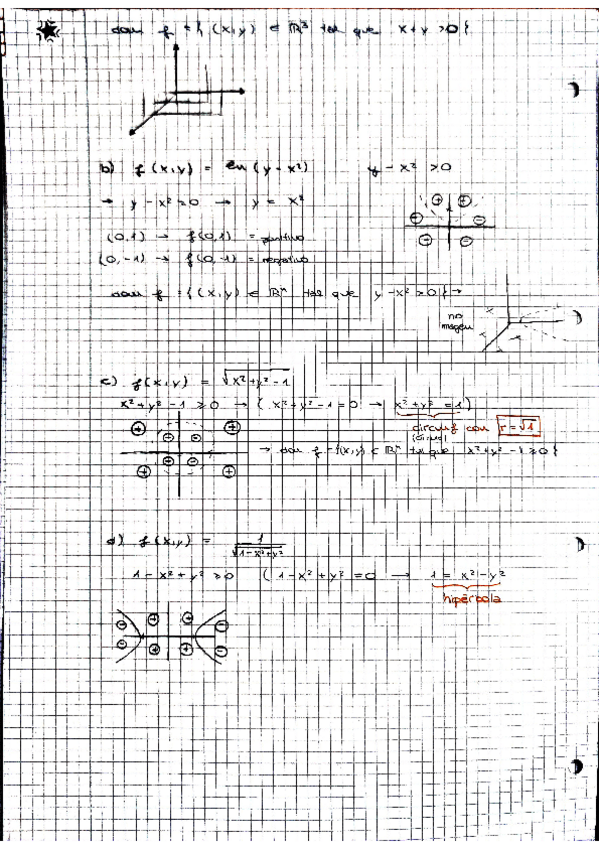 dom f = { (x,y) ∈ ℝ³ tal que x+y >0 {
b) f(x,y) = ln (y-x²) y - x² >0
→ y - x² = 0 → y = x²
(0,1) → f(0,1) = positivo
(0,-1) → f(0,-1) = negativo
dom f = { (x,y) ∈ ℝⁿ tal que y-x² >0 } →
no
c) f(x,y) = √x²+y²-1
x²+y²-1 ⩾0 → ( x²+y²-1=0 → x²+y² =1 )
circunf con r=√1
→ dom f = {(x,y) ∈ ℝⁿ tal que x²+y²-1 ⩾0 {
d) f(x,y) = 1/√1-x²+y²
1-x²+y² ⩾0 ( 1-x²+y² =0 → 1 = x²-y²
hipérbola